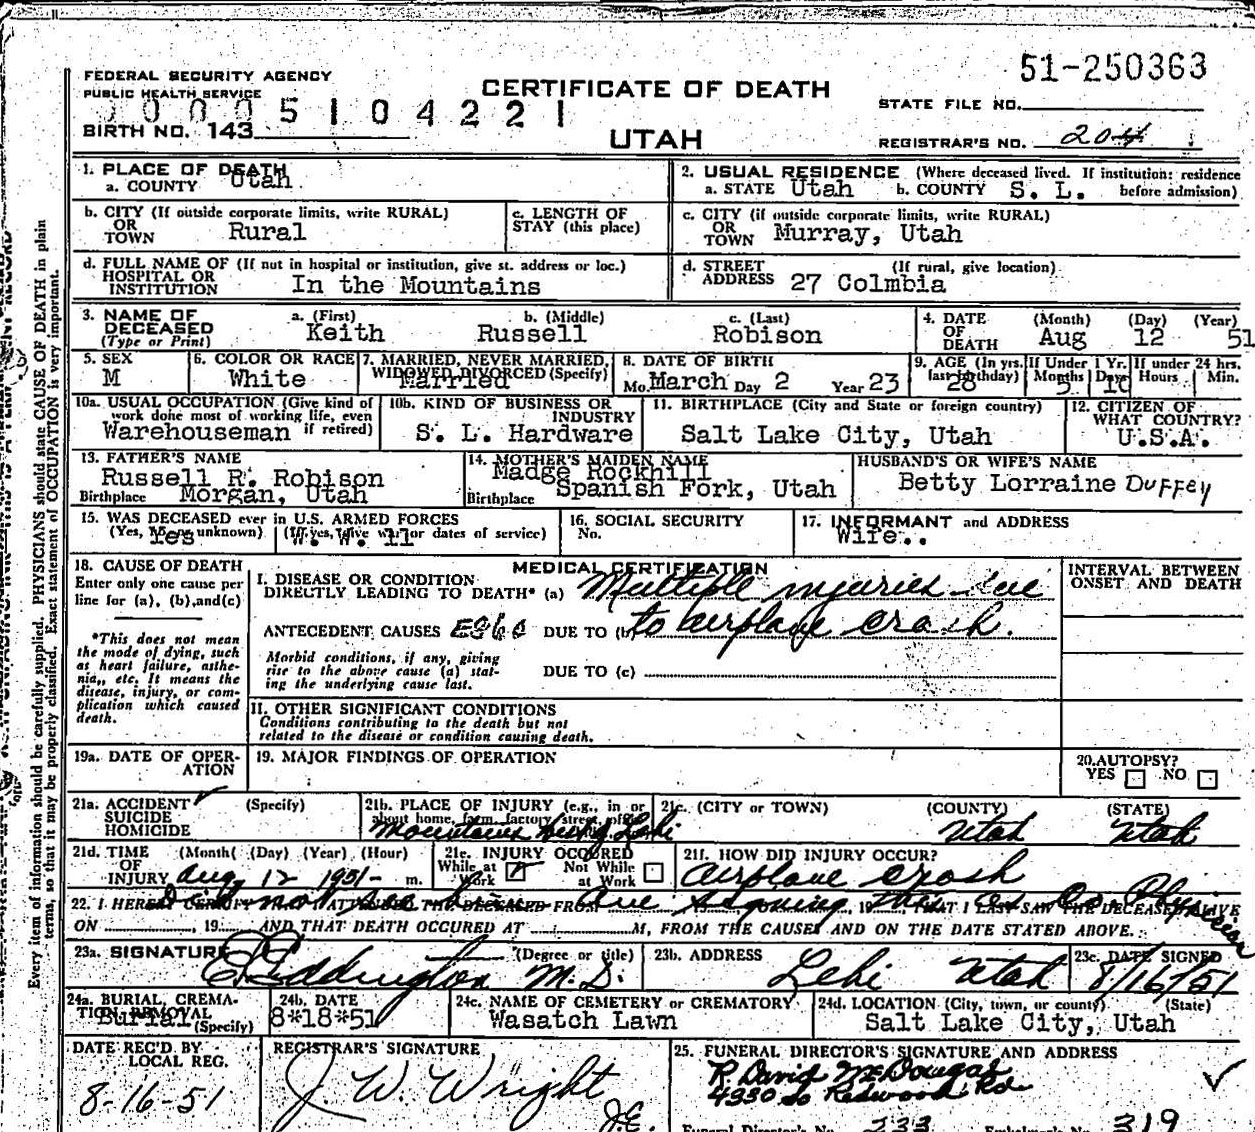 51-250363
FEDERAL SECURITY AGENCY
PUBLIC HEALTH SERVICE
CERTIFICATE OF DEATH
STATE FILE NO.
00005104221
BIRTH NO. 143
UTAH
REGISTRAR'S NO. 204
1. PLACE OF DEATH
a. COUNTY Utah
2. USUAL RESIDENCE (Where deceased lived. If institution: residence before admission)
a. STATE Utah b. COUNTY S. L.
b. CITY (If outside corporate limits, write RURAL)
OR TOWN Rural
c. LENGTH OF STAY (this place)
c. CITY (if outside corporate limits, write RURAL)
OR TOWN Murray, Utah
d. FULL NAME OF (If not in hospital or institution, give st. address or loc.)
HOSPITAL OR INSTITUTION In the Mountains
d. STREET ADDRESS (If rural, give location)
27 Colmbia
3. NAME OF DECEASED (Type or Print)
a. (First) b. (Middle) c. (Last)
Keith Russell Robison
4. DATE OF DEATH (Month) (Day) (Year)
Aug 12 51
5. SEX
M
6. COLOR OR RACE
White
7. MARRIED, NEVER MARRIED, WIDOWED DIVORCED (Specify)
Married
8. DATE OF BIRTH
Mo. March Day 2 Year 23
9. AGE (In yrs. last birthday) 28
If Under 1 Yr. Months 5 Days 10
If under 24 hrs. Hours Min.
10a. USUAL OCCUPATION (Give kind of work done most of working life, even if retired)
Warehouseman
10b. KIND OF BUSINESS OR INDUSTRY
S. L. Hardware
11. BIRTHPLACE (City and State or foreign country)
Salt Lake City, Utah
12. CITIZEN OF WHAT COUNTRY?
U.S.A.
13. FATHER'S NAME
Russell R. Robison
Birthplace Morgan, Utah
14. MOTHER'S MAIDEN NAME
Madge Rockhill
Birthplace Spanish Fork, Utah
HUSBAND'S OR WIFE'S NAME
Betty Lorraine Duffey
15. WAS DECEASED ever in U.S. ARMED FORCES
(Yes, No or unknown) (If yes, give war or dates of service)
Yes W. W. 11
16. SOCIAL SECURITY No.
17. INFORMANT and ADDRESS
Wife..
18. CAUSE OF DEATH
Enter only one cause per line for (a), (b), and (c)
*This does not mean the mode of dying, such as heart failure, asthenia,, etc. It means the disease, injury, or complication which caused death.
MEDICAL CERTIFICATION
I. DISEASE OR CONDITION
DIRECTLY LEADING TO DEATH* (a) Multiple injuries due
ANTECEDENT CAUSES E860 DUE TO (b) to airplane crash.
Morbid conditions, if any, giving rise to the above cause (a) stating the underlying cause last.
DUE TO (c)
II. OTHER SIGNIFICANT CONDITIONS
Conditions contributing to the death but not related to the disease or condition causing death.
INTERVAL BETWEEN ONSET AND DEATH
19a. DATE OF OPERATION
19. MAJOR FINDINGS OF OPERATION
20. AUTOPSY?
YES NO
21a. ACCIDENT ✓ (Specify)
SUICIDE
HOMICIDE
21b. PLACE OF INJURY (e.g., in or about home, farm, factory, street, office
Mountains Lehi
21c. (CITY or TOWN) (COUNTY) (STATE)
Utah Utah
21d. TIME OF INJURY (Month) (Day) (Year) (Hour)
Aug 12 1951- m.
21e. INJURY OCCURED
While at Work Not While at Work
21f. HOW DID INJURY OCCUR?
Airplane crash
22. I HEREBY CERTIFY THAT I ATTENDED THE DECEASED FROM 19 , 19 , THAT I LAST SAW THE DECEASED ALIVE
Did not see him signing this as Co. Physician
ON , 19 AND THAT DEATH OCCURED AT M, FROM THE CAUSES AND ON THE DATE STATED ABOVE.
23a. SIGNATURE (Degree or title)
E Eddington M. D.
23b. ADDRESS
Lehi Utah
23c. DATE SIGNED
8/16/51
24a. BURIAL, CREMATION, REMOVAL (Specify)
Burial
24b. DATE
8*18*51
24c. NAME OF CEMETERY or CREMATORY
Wasatch Lawn
24d. LOCATION (City, town, or county) (State)
Salt Lake City, Utah
DATE REC'D BY LOCAL REG.
8-16-51
REGISTRAR'S SIGNATURE
J. W. Wright
J.E.
25. FUNERAL DIRECTOR'S SIGNATURE AND ADDRESS
R. David McDougal
4330 So Redwood Rd
Funeral Director's No. 233 Embalmer's No. 319
Every item of information should be carefully supplied. PHYSICIANS should state CAUSE OF DEATH in plain
terms, so that it may be properly classified. Exact statement of OCCUPATION is very important.